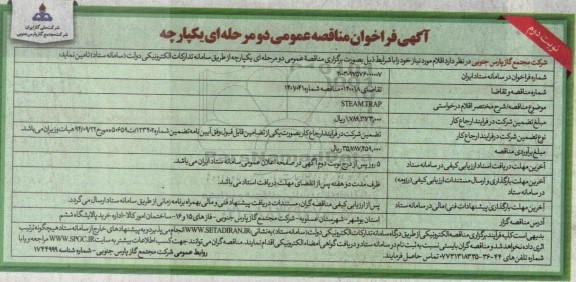 نوبت دوم
شرکت ملی گاز ایران
شرکت مجتمع گاز پارس جنوبی
آگهی فراخوان مناقصه عمومی دو مرحله ای یکپارچه
شرکت مجتمع گاز پارس جنوبی در نظر دارد اقلام مورد نیاز خود را با شرایط ذیل بصورت برگزاری مناقصه عمومی دو مرحله ای یکپارچه از طریق سامانه تدارکات الکترونیکی دولت (سامانه ستاد) تامین نماید:
شماره فراخوان در سامانه ستاد ایران
شماره مناقصه و تقاضا
موضوع مناقصه/ شرح مختصر اقلام درخواستی STEAM TRAP
مبلغ تضمین شرکت در فرایند ارجاع کار ریال
نوع تضمین شرکت در فرایند ارجاع کار تضمین شرکت در فرایند ارجاع کار بصورت یکی از تضامین قابل قبول وفق آیین نامه تضمین شماره هیات وزیران می باشد.
مبلغ برآوردی مناقصه ریال
آخرین مهلت دریافت اسناد ارزیابی کیفی در سامانه ستاد ۵ روز پس از درج نوبت دوم آگهی در صفحه اعلان عمومی سامانه ستاد ایران می باشد.
آخرین مهلت بارگذاری و ارسال مستندات ارزیابی کیفی (رزومه) در سامانه ستاد ظرف مدت دو هفته پس از انقضای مهلت دریافت استاد می باشد.
آخرین مهلت بارگذاری پیشنهادات فنی/مالی در سامانه ستاد پس از ارزیابی کیفی مناقصه گران، مستندات دریافت پیشنهاد فنی و مالی بهمراه برنامه زمانی از طریق سامانه ستاد ارسال می گردد.
آدرس مناقصه گزار استان بوشهر - شهرستان عسلویه - شرکت مجتمع گاز پارس جنوبی - فازهای ۱۵ و ۱۶ - ساختمان امور کالا - اداره خرید پالایشگاه ششم
بدیهی است کلیه فرآیند برگزاری مناقصه الکترونیکی از طریق درگاه سامانه تدارکات الکترونیکی دولت (سامانه ستاد) به نشانی (WWW.SETADIRAN.IR) انجام می پذیرد و به پیشنهادهای خارج از سامانه ستاد هیچگونه ترتیب
اثری داده نخواهد شد و مناقصه گران بایستی نسبت به ثبت نام در سامانه ستاد و دریافت گواهی امضاء الکترونیکی اقدام نمایند. مناقصه گران می توانند جهت کسب اطلاعات بیشتر به سایت WWW.SPGC.IR مراجعه و یا با
شماره تلفن های تماس حاصل فرمایند.
روابط عمومی شرکت مجتمع گاز پارس جنوبی - شماره شناسه ۱۷۴۴۹۹۹